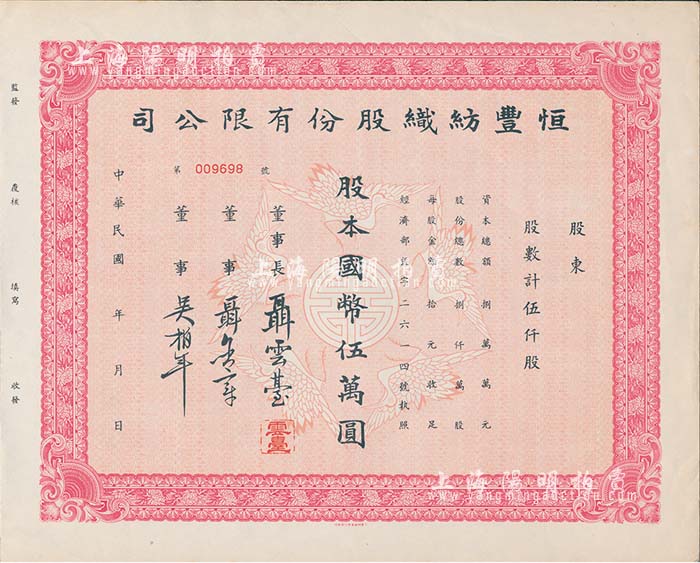 恒豐紡織股份有限公司
股東
股數計伍仟股
資本總額捌萬萬元
股份總數捌仟萬股
每股金額拾元收足
經濟部 字二六一四號執照
股本國幣伍萬圓
董事長 聶雲臺
雲臺
董事 聶
董事 吳柏年
第 009698 號
中華民國 年 月 日
監發
覆核
填寫
收發
上海陽明拍賣
www.yangmingauction.com
上海陽明拍賣
www.yangmingauction.com
上海陽明拍賣
www.yangmingauction.com